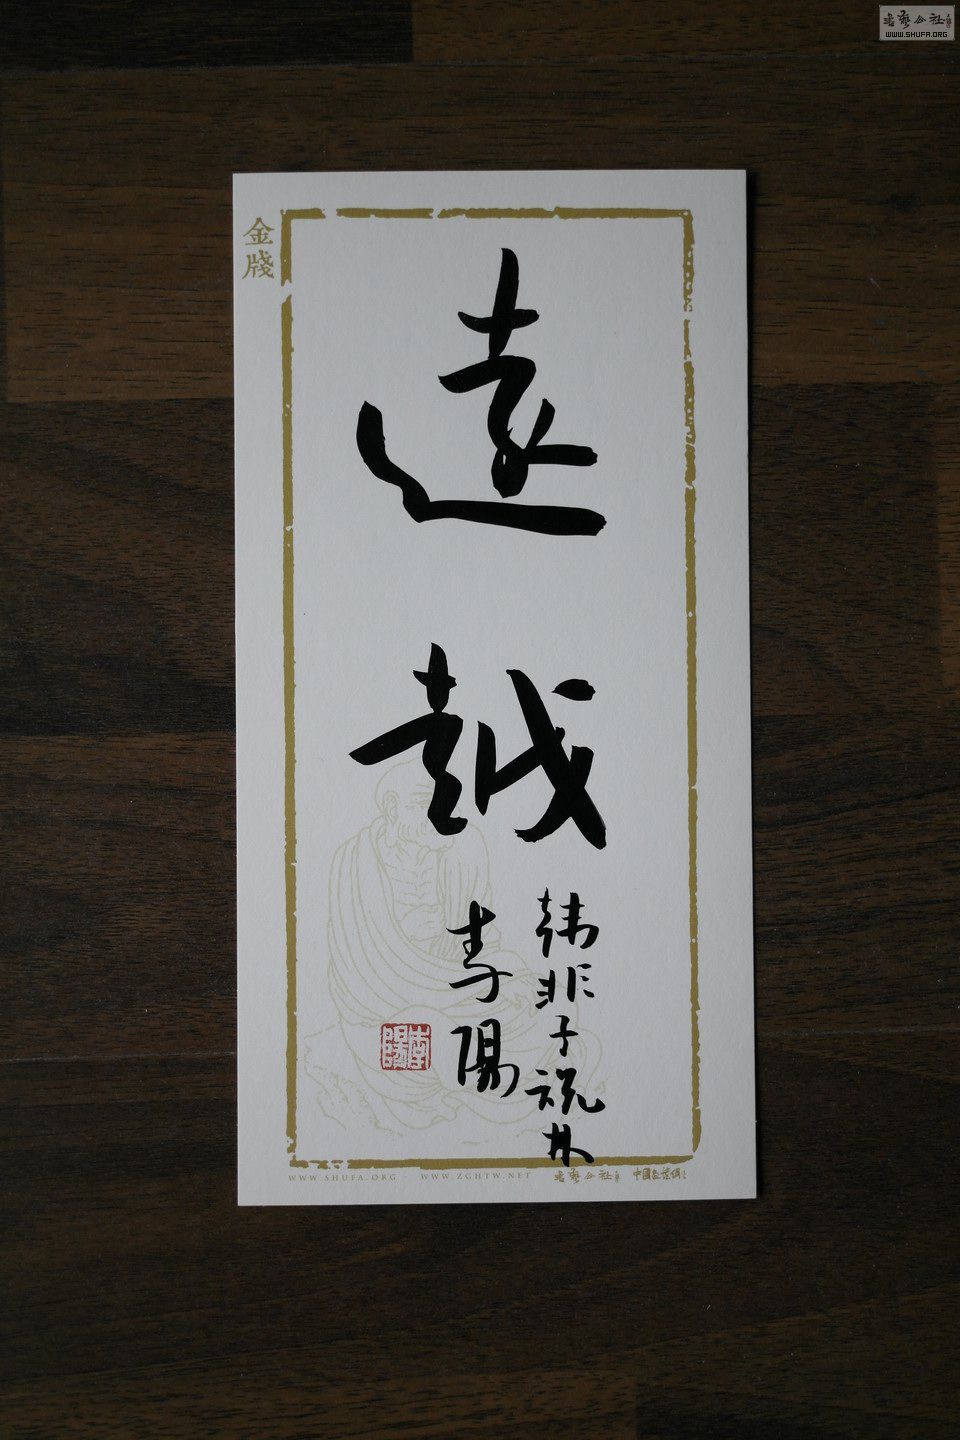 書藝公社
WWW.SHUFA.ORG
金牋
遠越
韓非子說林
李陽
李陽
WWW.SHUFA.ORG WWW.ZGHTW.NET 書藝公社